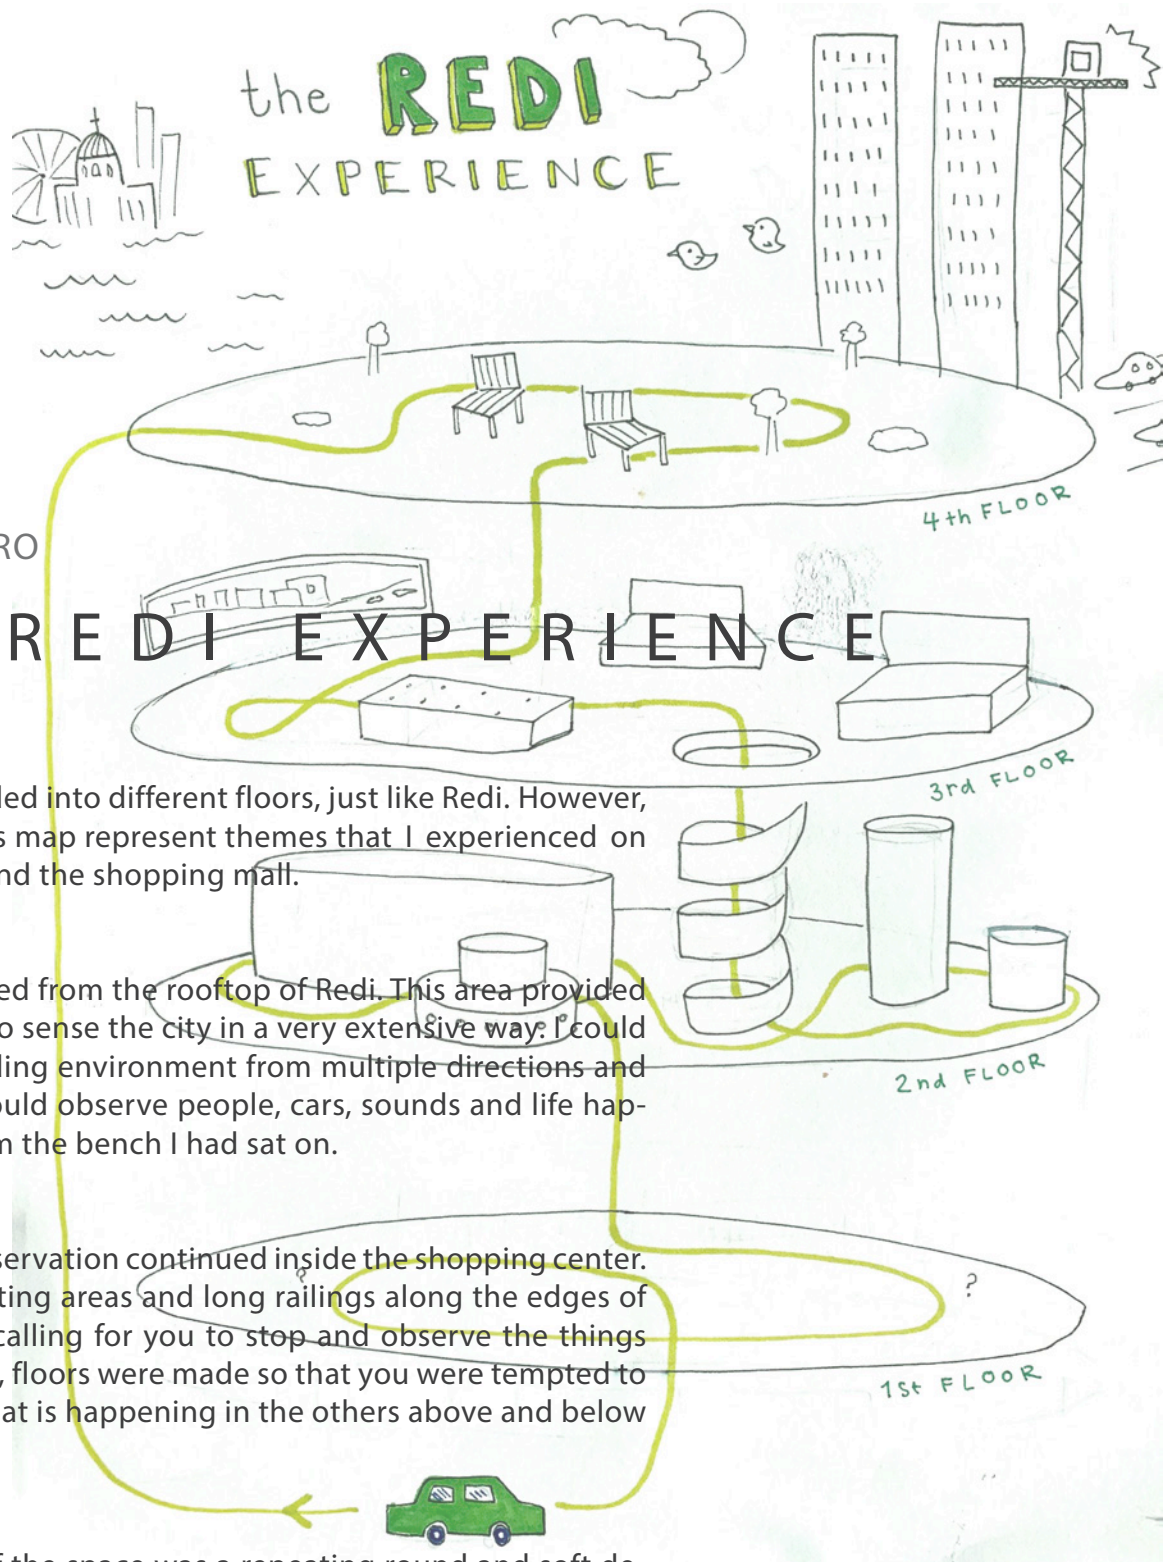 the REDI
EXPERIENCE
4th FLOOR
REDI EXPERIENCE
3rd FLOOR
into different floors, just like Redi. However,
map represent themes that I experienced on
the shopping mall.
from the rooftop of Redi. This area provided
sense the city in a very extensive way. I could
environment from multiple directions and
observe people, cars, sounds and life hap-
the bench I had sat on.
2nd FLOOR
continued inside the shopping center.
areas and long railings along the edges of
calling for you to stop and observe the things
floors were made so that you were tempted to
is happening in the others above and below
?
?
1st FLOOR
the space was a repeating round and soft de-